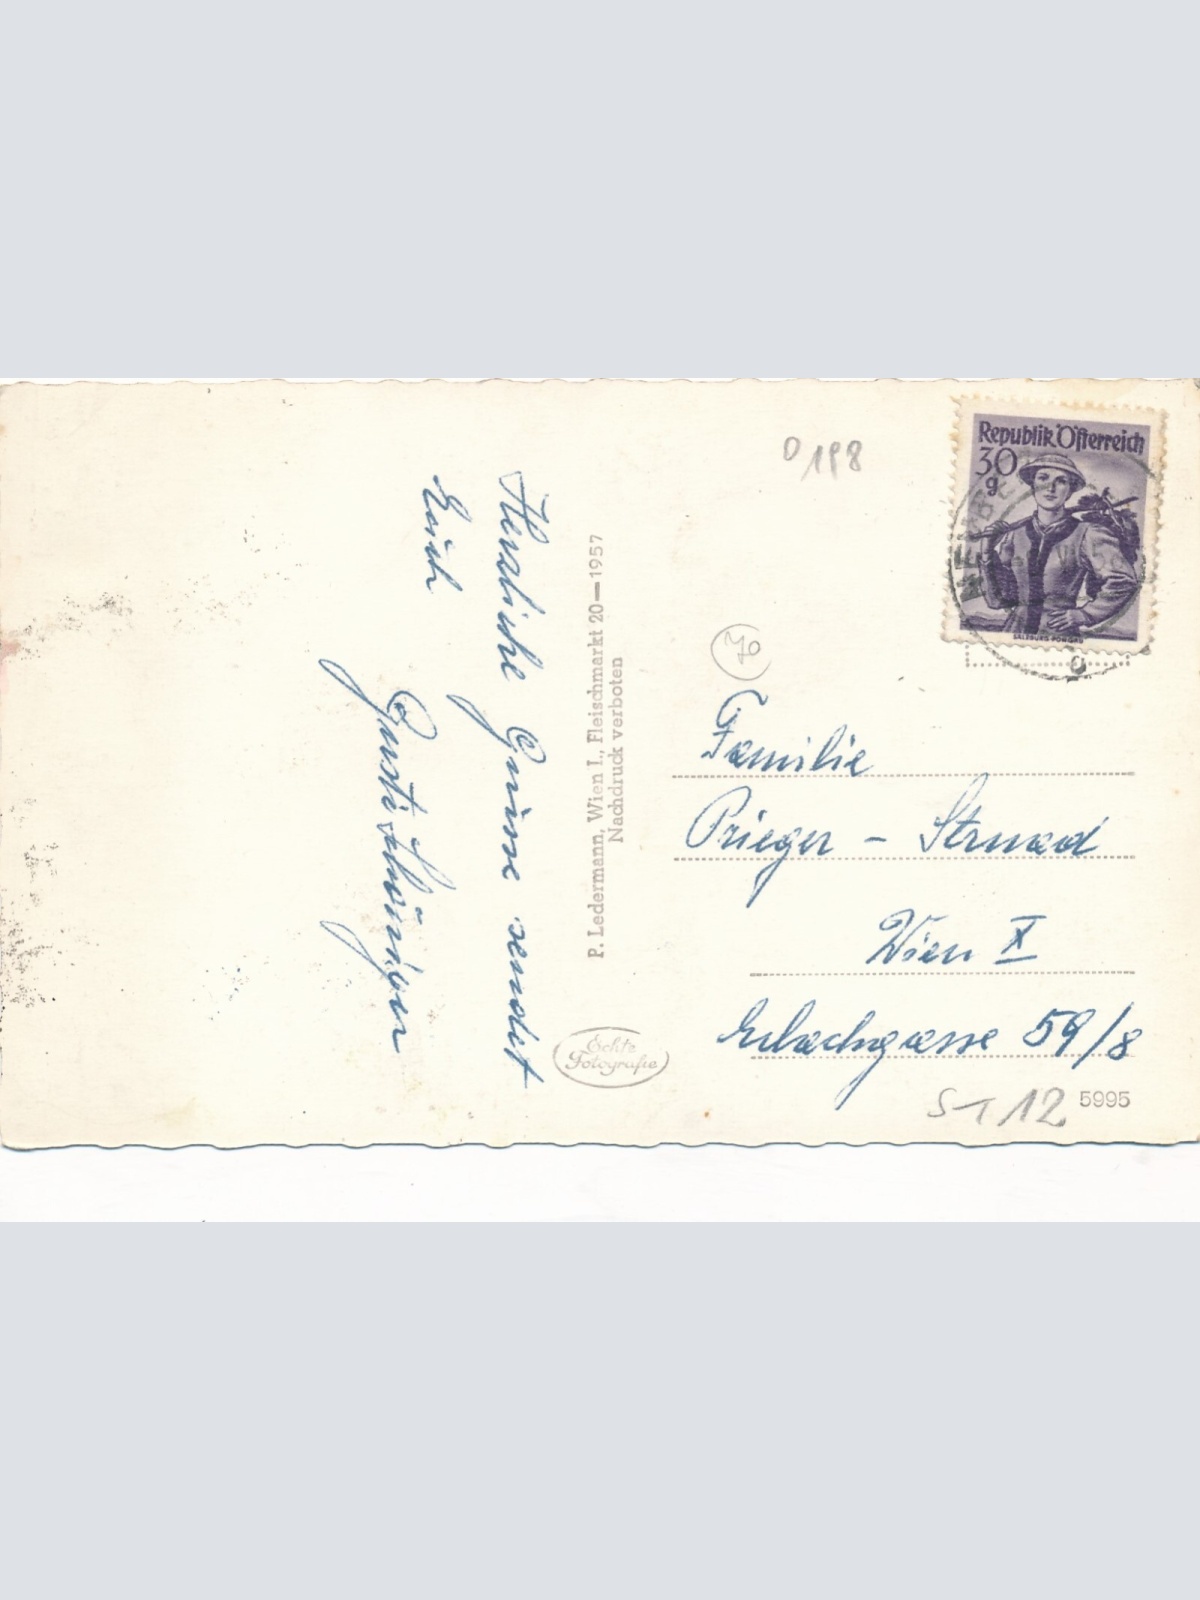 Herzliche Grüsse sendet
Euch
Gusti
P. Ledermann, Wien I., Fleischmarkt 20—1957
Nachdruck verboten
Echte
Fotografie
D 198
Republik Österreich
30
g
SALZBURG-PONGAU
70
Familie
Prieger - Strnad
Wien X
Erlachgasse 59/8
ST 12
5995